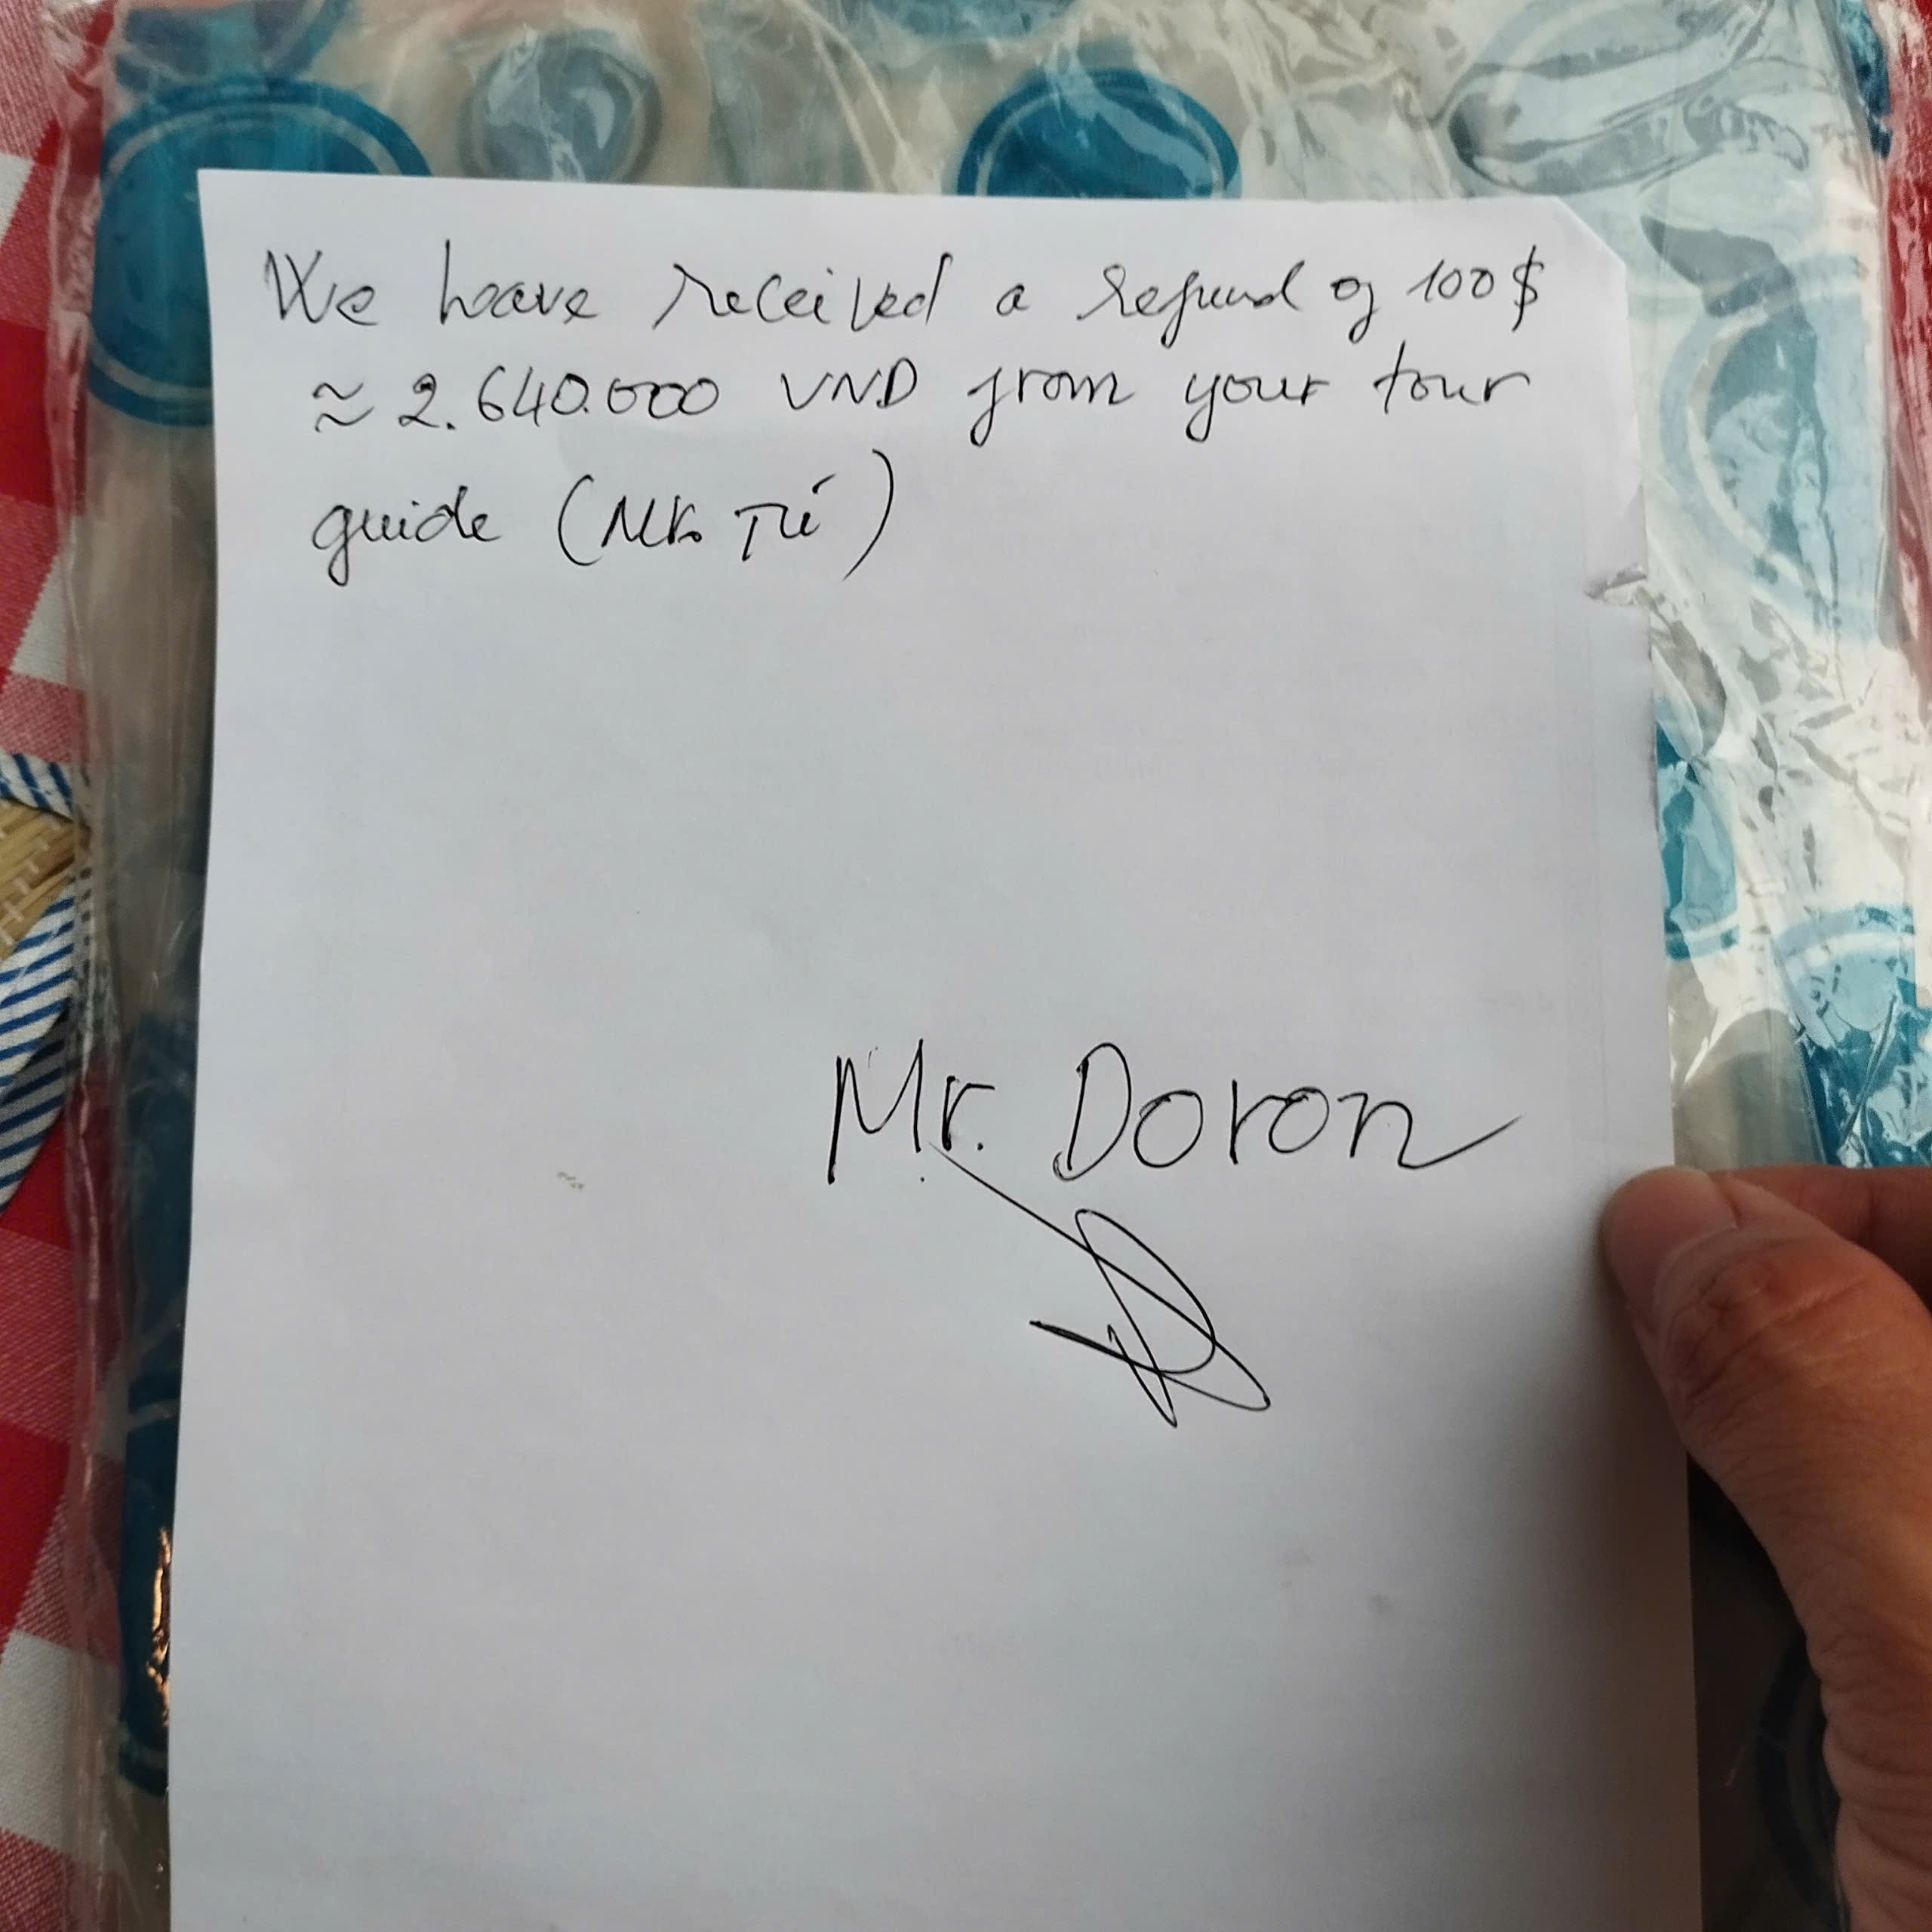 We have received a refund of 100$
≈ 2.640.000 VND from your tour
guide (Mr. Tú)
Mr. Doron